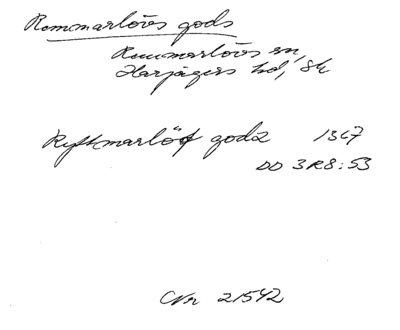 Remmarlövs gods
Remmarlövs sn,
Harjagers hd, Sk
Rythmarlöf godz 1367
DD 3R8:53
CNr 21542